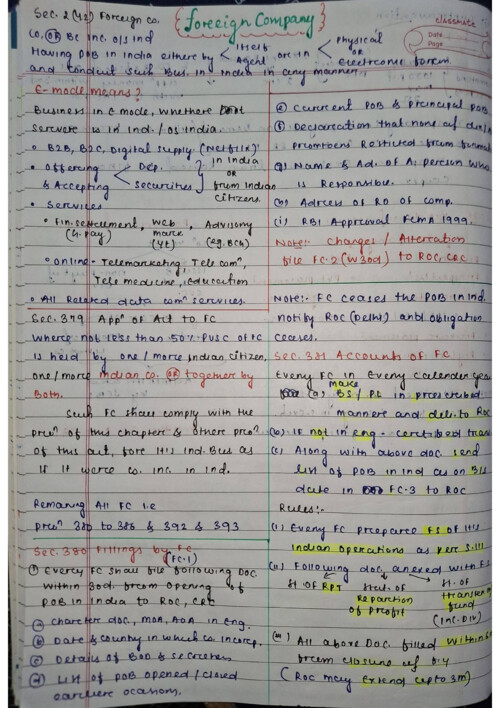 Sec. 2(42) Foreign Co.
{Foreign Company}
classmate
Date
Page
Co. OR BC inc. o/s Ind
Having POB in India either by < itself Agent or in < Physical OR Electronic form
and conduct such Bus. in India in any manner.
E-mode means?
Business in E mode, whether not
server is in Ind./os India.
• B2B, B2C, digital supply (Netflix)
• Offering & Accepting < Dep. Securities } in India OR from Indian Citizens.
• Services
• Fin. settlement, web, Advisory
(G.pay) (yt) (eg. BCG)
• Online - Telemarketing, Tele comn,
Tele medicine, education
• All Related data comn services.
Sec. 379 Appn of Act to FC
where not less than 50% PUSC of FC
is held by one / more Indian Citizen,
one/more Indian Co. OR together by
Both.
Such FC shall comply with the
provn of this chapter & other provn
of this act, for its Ind. Bus as
if it were co. inc. in Ind.
Remaining All FC i.e
provn 380 to 386 & 392 & 393
Sec. 380 Fillings by FC
(FC-1)
① Every FC shall file following Doc.
within 30d. from opening of
POB in India to ROC, CRC
ⓐ charter doc, MOA, AOA in eng.
ⓑ Date & country in which co. incorp.
ⓒ Details of BOD & secretary
ⓓ List of POB opened / closed
earlier ocasion.
ⓔ Current POB & Principal POB
ⓕ Declarration that none of
Ⓖ Name & Ad. of A. person who
is Responsible.
(h) Adress of RO of comp.
(i) RBI Approval FEMA 1999.
Note:- changes / Alterration
file FC-2 (w30d) to ROC, CRC
Note:- FC ceases the POB in Ind.
notify ROC (Delhi) and obligation
ceases.
Sec. 381 Accounts of FC
Every FC in Every calender
make
(a) BS/PL in prescribed
manner and del. to ROC
(b) If not in eng - certified
(c) Along with above doc. send
list of POB in Ind as on BS
date in FC-3 to ROC
Rules:-
(i) Every FC prepare FS of its
Indian operations as per S.III
(ii) Following doc, anexed with F.S
St. of RPT Stat. of St. of
Repartion transfer
of profit fund
(inc. DIV)
(iii) All above Doc. filled within
from closure of
(ROC may extend upto 3m)